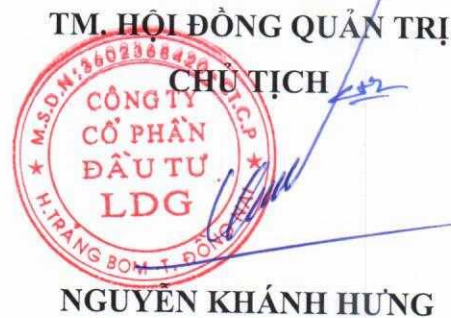 TM. HỘI ĐỒNG QUẢN TRỊ
CHỦ TỊCH
M.S.D.N:3602368420-C.T.C.P
CÔNG TY
CỔ PHẦN
ĐẦU TƯ
LDG
H.TRẢNG BOM-T. ĐỒNG NAI
NGUYỄN KHÁNH HƯNG